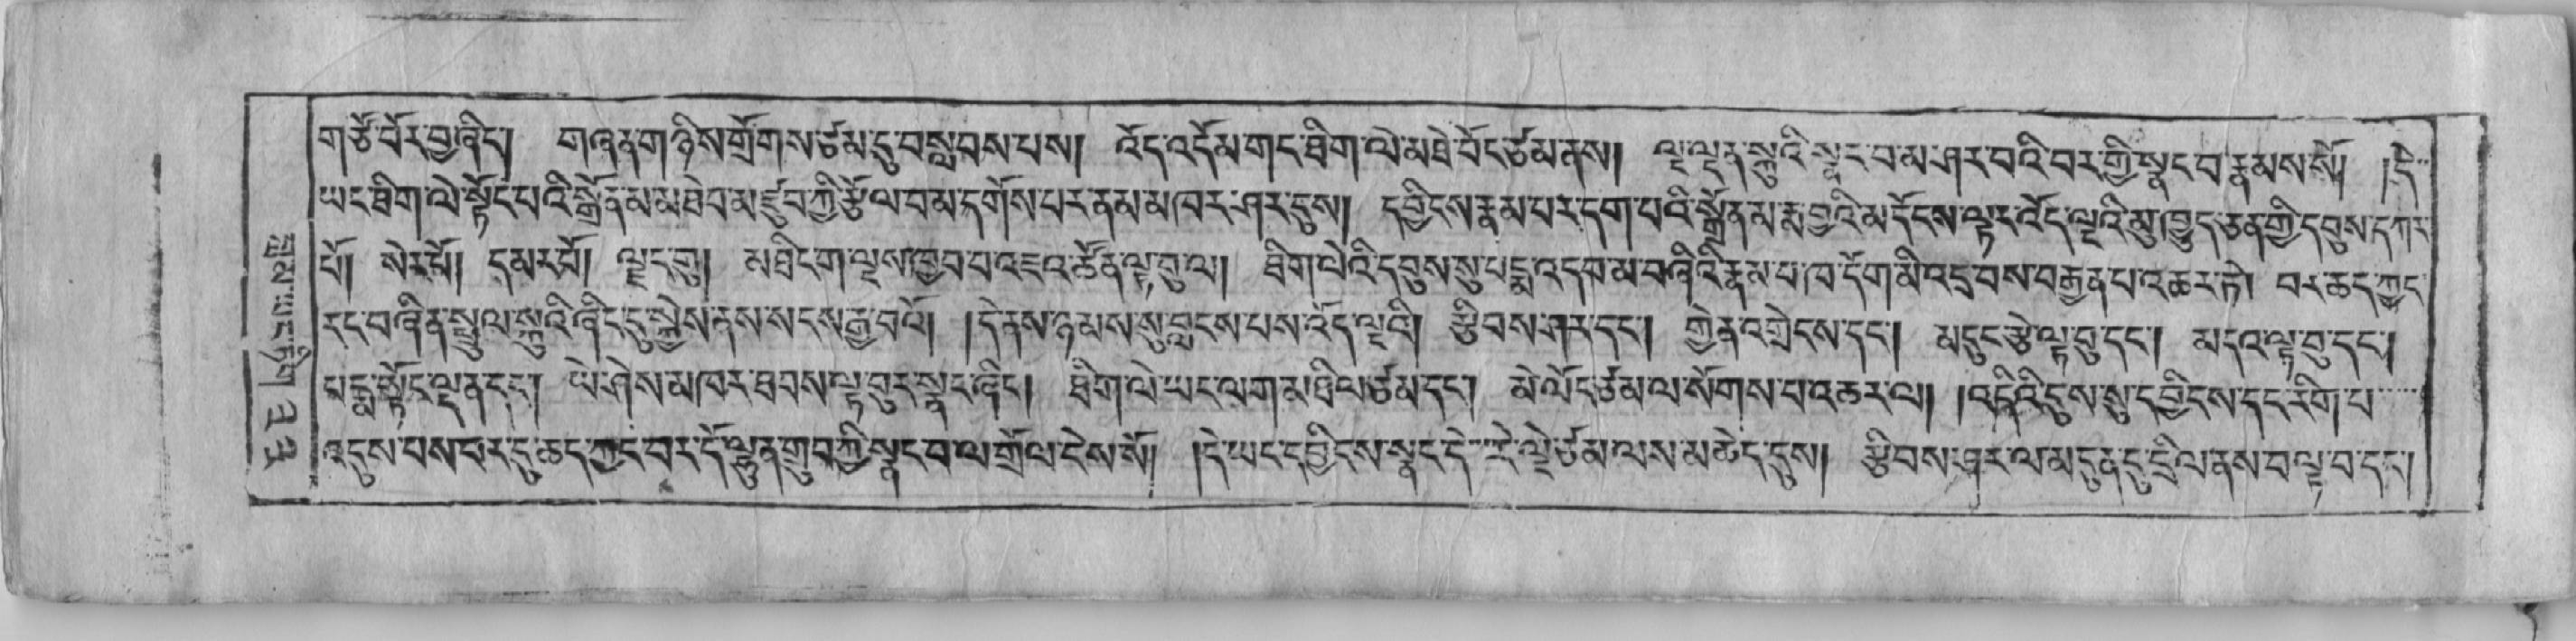 གཙོ་བོར་བྱ་ཞིང༌། གཞན་གཉིས་གྲོགས་ཙམ་དུ་བསླབས་པས། འོད་འདོམ་གང་ཐིག་ལེ་མཐེ་བོང་ཙམ་ནས། ལྔ་ལྡན་སྐུའི་སྣང་བ་མ་ཤར་བའི་བར་གྱི་སྣང་བ་རྣམས་སོ། །དེ་
ཡང་ཐིག་ལེ་སྟོང་པའི་སྒྲོན་མ་མཐེབ་མཛུབ་ཀྱི་རྩོལ་བ་མ་དགོས་པར་ནམ་མཁར་ཤར་དུས། དབྱིངས་རྣམ་པར་དག་པའི་སྒྲོན་མ་རྨ་བྱའི་མདོངས་ལྟར་འོད་ལྔའི་མུ་ཁྱུད་ཅན་གྱི་དབུས་དཀར་
པོ། སེར་པོ། དམར་པོ། ལྗང་གུ། མཐིང་ག་ལྔས་ཁྱབ་པ་འཇའ་ཚོན་ལྟ་བུ་ལ། ཐིག་ལེའི་དབུས་སུ་པདྨ་འདབ་མ་བཞིའི་རྣམ་པ་ཁ་དོག་མི་འདྲ་བས་བརྒྱན་པ་འཆར་ཏེ། བར་ཆད་ཀྱང་
རང་བཞིན་སྤྲུལ་སྐུའི་ཞིང་དུ་སྐྱེས་ནས་སངས་རྒྱ་བའོ། །དེ་ནས་ཉམས་སུ་བླངས་པས་འོད་ལྔའི། རྩིབས་ཤར་དང༌། གྱེན་འགྲེངས་དང༌། མདུང་རྩེ་ལྟ་བུ་དང༌། མདའ་ལྟ་བུ་དང༌།
པདྨ་སྟོང་ལྡན་དང༌། ཡེ་ཤེས་མཁར་ཐབས་ལྟ་བུར་སྣང་ཞིང༌། ཐིག་ལེ་ཡང་ལག་མཐིལ་ཙམ་དང༌། མེ་ལོང་ཙམ་ལ་སོགས་པ་འཆར་ལ། །འདིའི་དུས་སུ་དབྱིངས་དང་རིག་པ་
འདུས་པས་བར་དུ་ཆད་ཀྱང་བར་དོ་ལྷུན་གྲུབ་ཀྱི་སྣང་བ་ལ་གྲོལ་ངེས་སོ། །དེ་ཡང་དབྱིངས་སྣང་དེ་ དེ་ལྟེ་ཙམ་ལས་མ་ཆེད་དུས། རྩིབས་ཤར་ལ་མདུན་དུ་དྲིལ་ནས་བལྟ་བ་དང༌།